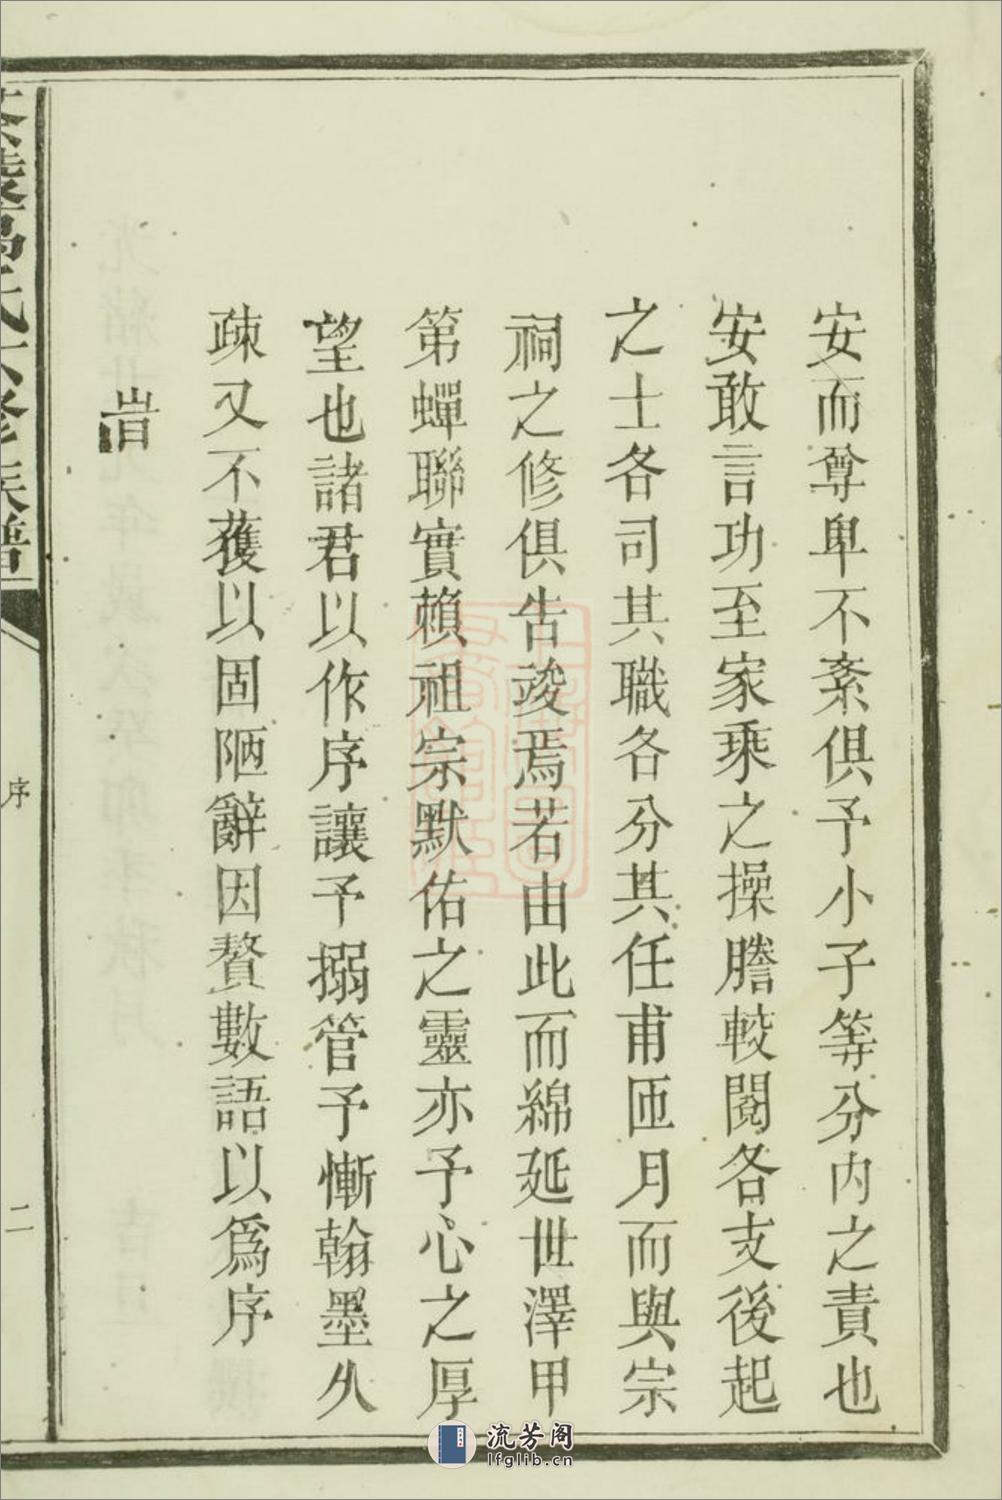 安而尊卑不紊俱予小子等分內之責也
安敢言功至家乘之操謄較閱各支後起
之士各司其職各分其任甫匝月而與宗
祠之修俱告竣焉若由此而綿延世澤甲
第蟬聯實賴祖宗默佑之靈亦予心之厚
望也諸君以作序讓予搦管予慚翰墨久
疎又不獲以固陋辭因贅數語以爲序
旹
氏六修族譜
序
二
流芳阁
lfglib.cn